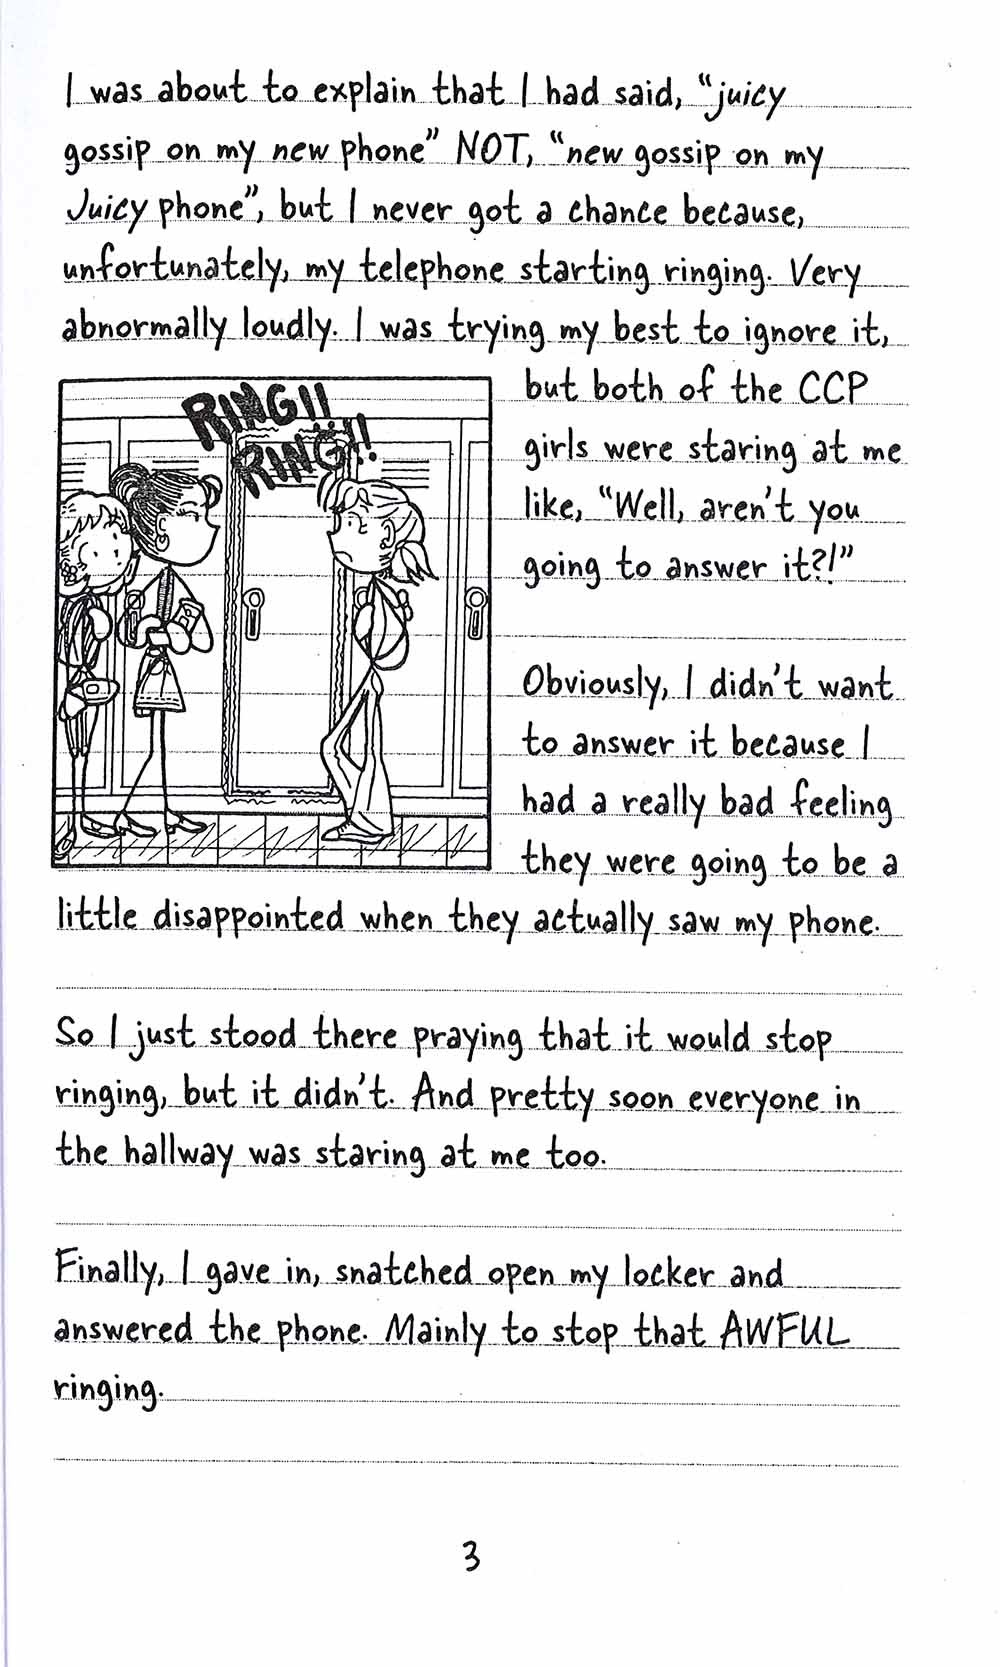 I was about to explain that I had said, "juicy
gossip on my new phone" NOT, "new gossip on my
Juicy phone", but I never got a chance because,
unfortunately, my telephone starting ringing. Very
abnormally loudly. I was trying my best to ignore it,
RING!!
RING!!
but both of the CCP
girls were staring at me
like, "Well, aren't you
going to answer it?!"
Obviously, I didn't want
to answer it because I
had a really bad feeling
they were going to be a
little disappointed when they actually saw my phone.
So I just stood there praying that it would stop
ringing, but it didn't. And pretty soon everyone in
the hallway was staring at me too.
Finally, I gave in, snatched open my locker and
answered the phone. Mainly to stop that AWFUL
ringing.
3